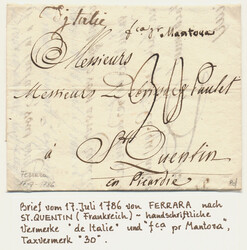 d'Italie
fca pr Mantova
Messieurs
Messieurs De Paulet
30
à St Quentin
en Picardie
FERRARA
17.7.1786
Brief vom 17. Juli 1786 von FERRARA nach
ST. QUENTIN (Frankreich) - handschriftliche
Vermerke "de Italie" und "fca pr Mantova",
Taxvermerk "30".